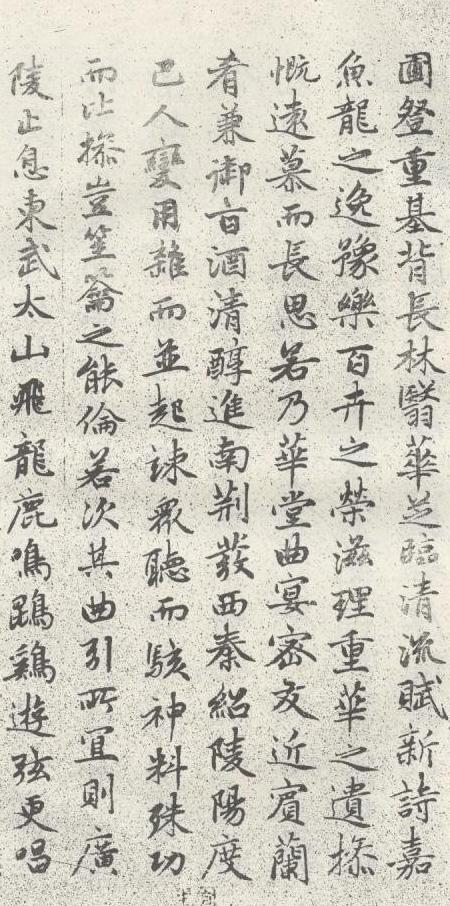 圃登重基背長林翳華芝臨清流賦新詩嘉
魚龍之逸豫樂百卉之榮滋理重華之遺操
慨遠慕而長思若乃華堂曲宴密友近賓蘭
肴兼御旨酒清醇進南荊發西秦紹陵陽度
巴人變用雜而並起竦眾聽而駭神料殊功
而比操豈笙籥之能倫若次其曲引所宜則廣
陵止息東武太山飛龍鹿鳴鵾鷄遊弦更唱